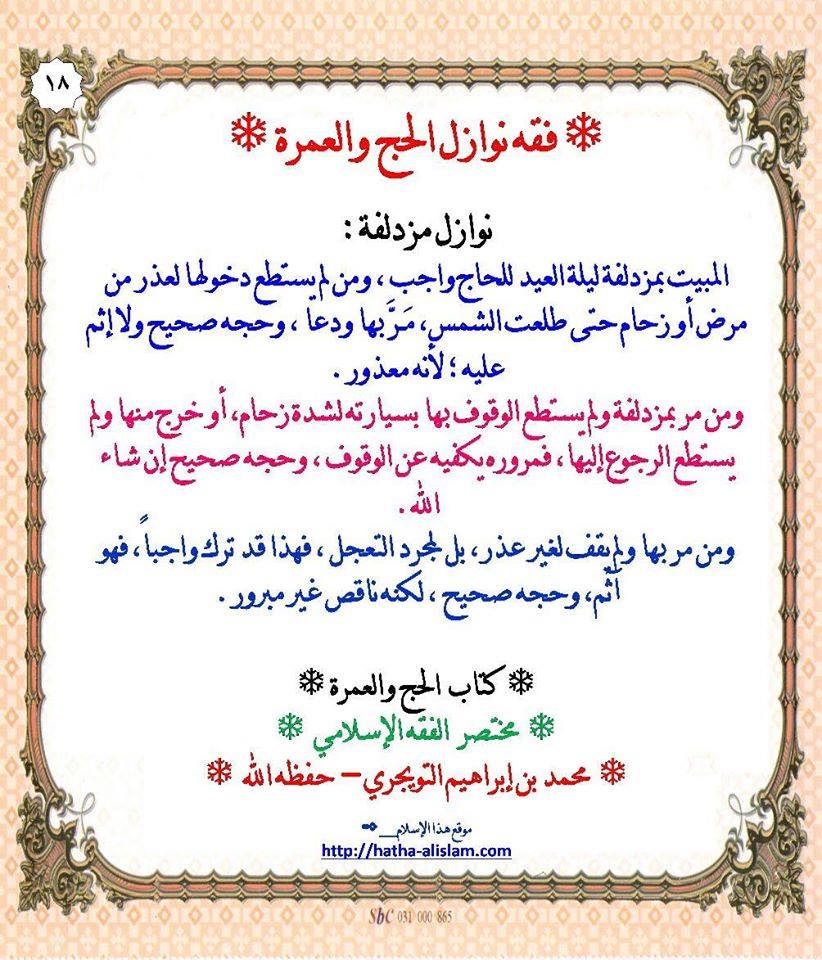 ١٨
❄ فقه نوازل الحج والعمرة ❄
نوازل مزدلفة :
المبيت بمزدلفة ليلة العيد للحاج واجب ، ومن لم يستطع دخولها لعذر من
مرض أو زحام حتى طلعت الشمس، مَرَّ بها ودعا ، وحجه صحيح ولا إثم
عليه ؛ لأنه معذور .
ومن مر بمزدلفة ولم يستطع الوقوف بها بسيارته لشدة زحام، أو خرج منها ولم
يستطع الرجوع إليها ، فمروره يكفيه عن الوقوف ، وحجه صحيح إن شاء
الله .
ومن مر بها ولم يقف لغير عذر، بل لمجرد التعجل ، فهذا قد ترك واجباً ، فهو
آثم، وحجه صحيح ، لكنه ناقص غير مبرور .
❄ كتاب الحج والعمرة ❄
❄ مختصر الفقه الإسلامي ❄
❄ محمد بن إبراهيم التويجري – حفظه الله ❄
موقع هذا الإسلام__✒
http://hatha-alislam.com
SbC 031 000 865